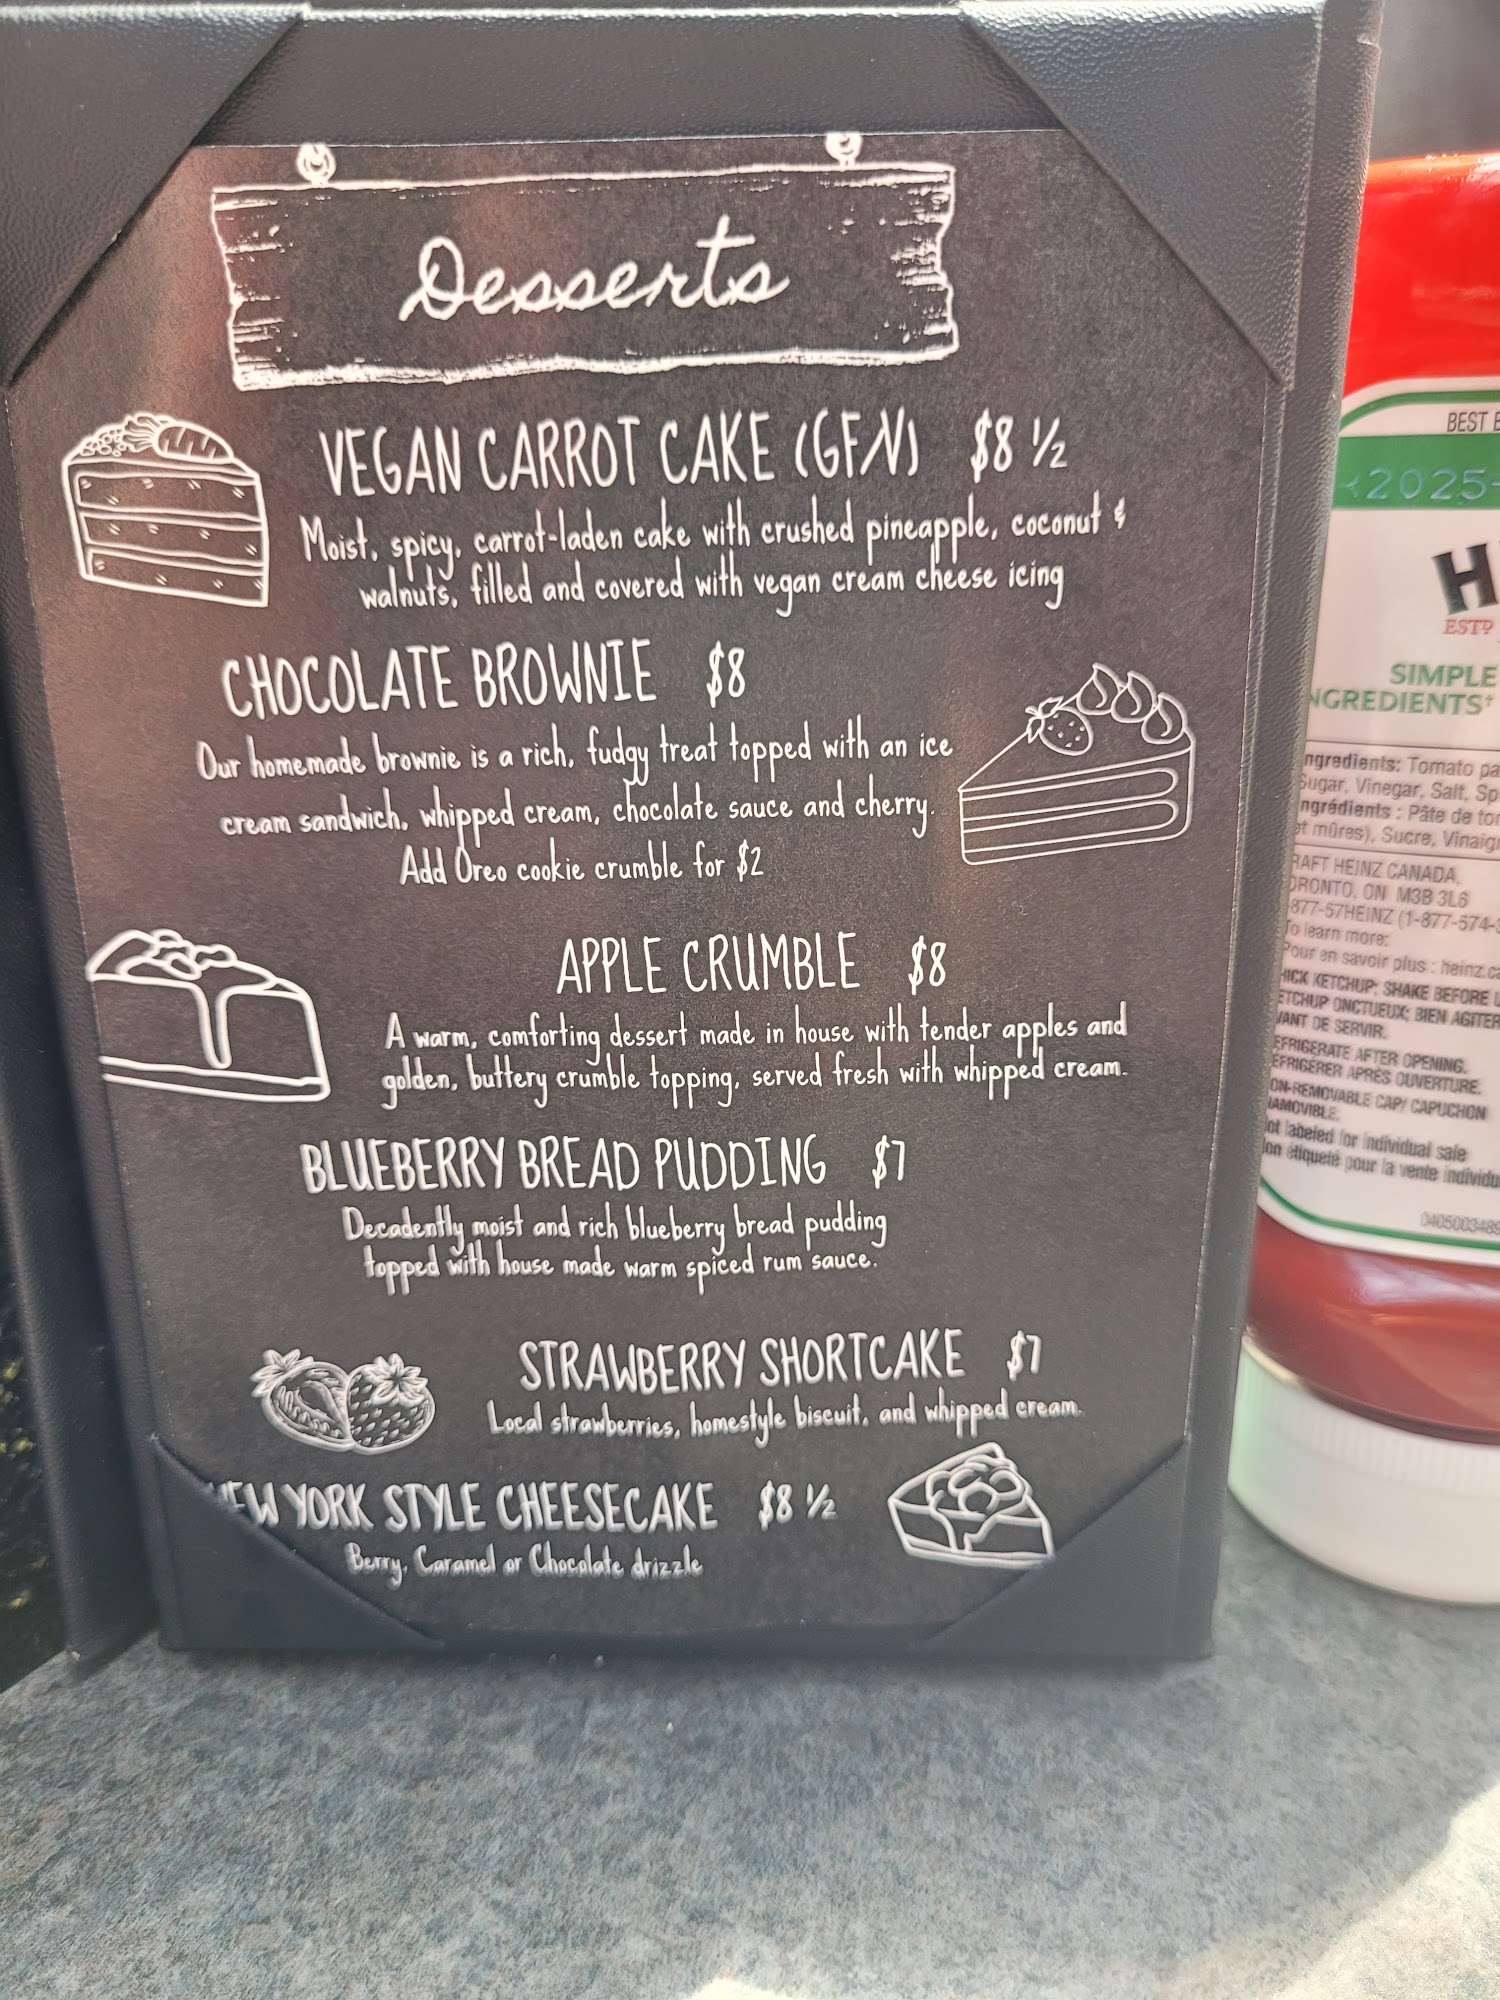 Desserts
VEGAN CARROT CAKE (GF/V) $8 ½
Moist, spicy, carrot-laden cake with crushed pineapple, coconut &
walnuts, filled and covered with vegan cream cheese icing
CHOCOLATE BROWNIE $8
Our homemade brownie is a rich, fudgy treat topped with an ice
cream sandwich, whipped cream, chocolate sauce and cherry.
Add Oreo cookie crumble for $2
APPLE CRUMBLE $8
A warm, comforting dessert made in house with tender apples and
golden, buttery crumble topping, served fresh with whipped cream.
BLUEBERRY BREAD PUDDING $7
Decadently moist and rich blueberry bread pudding
topped with house made warm spiced rum sauce.
STRAWBERRY SHORTCAKE $7
Local strawberries, homestyle biscuit, and whipped cream.
EW YORK STYLE CHEESECAKE $8 ½
Berry, Caramel or Chocolate drizzle
BEST
2025-
H
ESTD
SIMPLE
NGREDIENTS†
ngredients: Tomato pa
Sugar, Vinegar, Salt, Sp
ngrédients : Pâte de to
et mûres), Sucre, Vinaig
RAFT HEINZ CANADA,
ORONTO, ON M3B 3L6
-877-57HEINZ (1-877-574-
To learn more:
Pour en savoir plus : heinz.c
HICK KETCHUP; SHAKE BEFORE
ETCHUP ONCTUEUX; BIEN AGITER
VANT DE SERVIR.
EFRIGERATE AFTER OPENING.
EFRIGÉRER APRÈS OUVERTURE.
ON-REMOVABLE CAP/ CAPUCHON
NAMOVIBLE.
ot labeled for individual sale
on étiqueté pour la vente individu